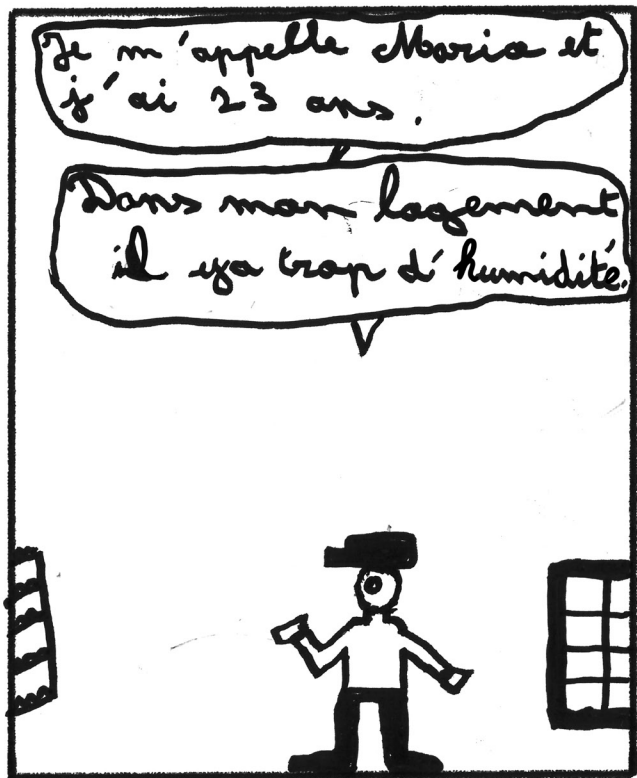 Je m'appelle Maria et
j'ai 23 ans.
Dans mon logement
il ya trop d'humidité.